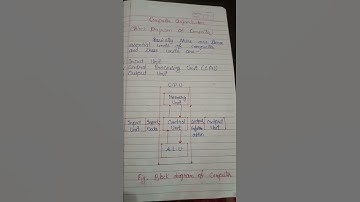 Computer Organization
Block Diagram of Computer
Basically there are three
essential units of computer
and these units are-
Input Unit
Central Processing Unit (CPU)
Output Unit
C.P.U
Memory
Unit
Input
Unit
Input
Data
Control
Unit
Output
Unit
A.L.U
Fig. Block diagram of Computer